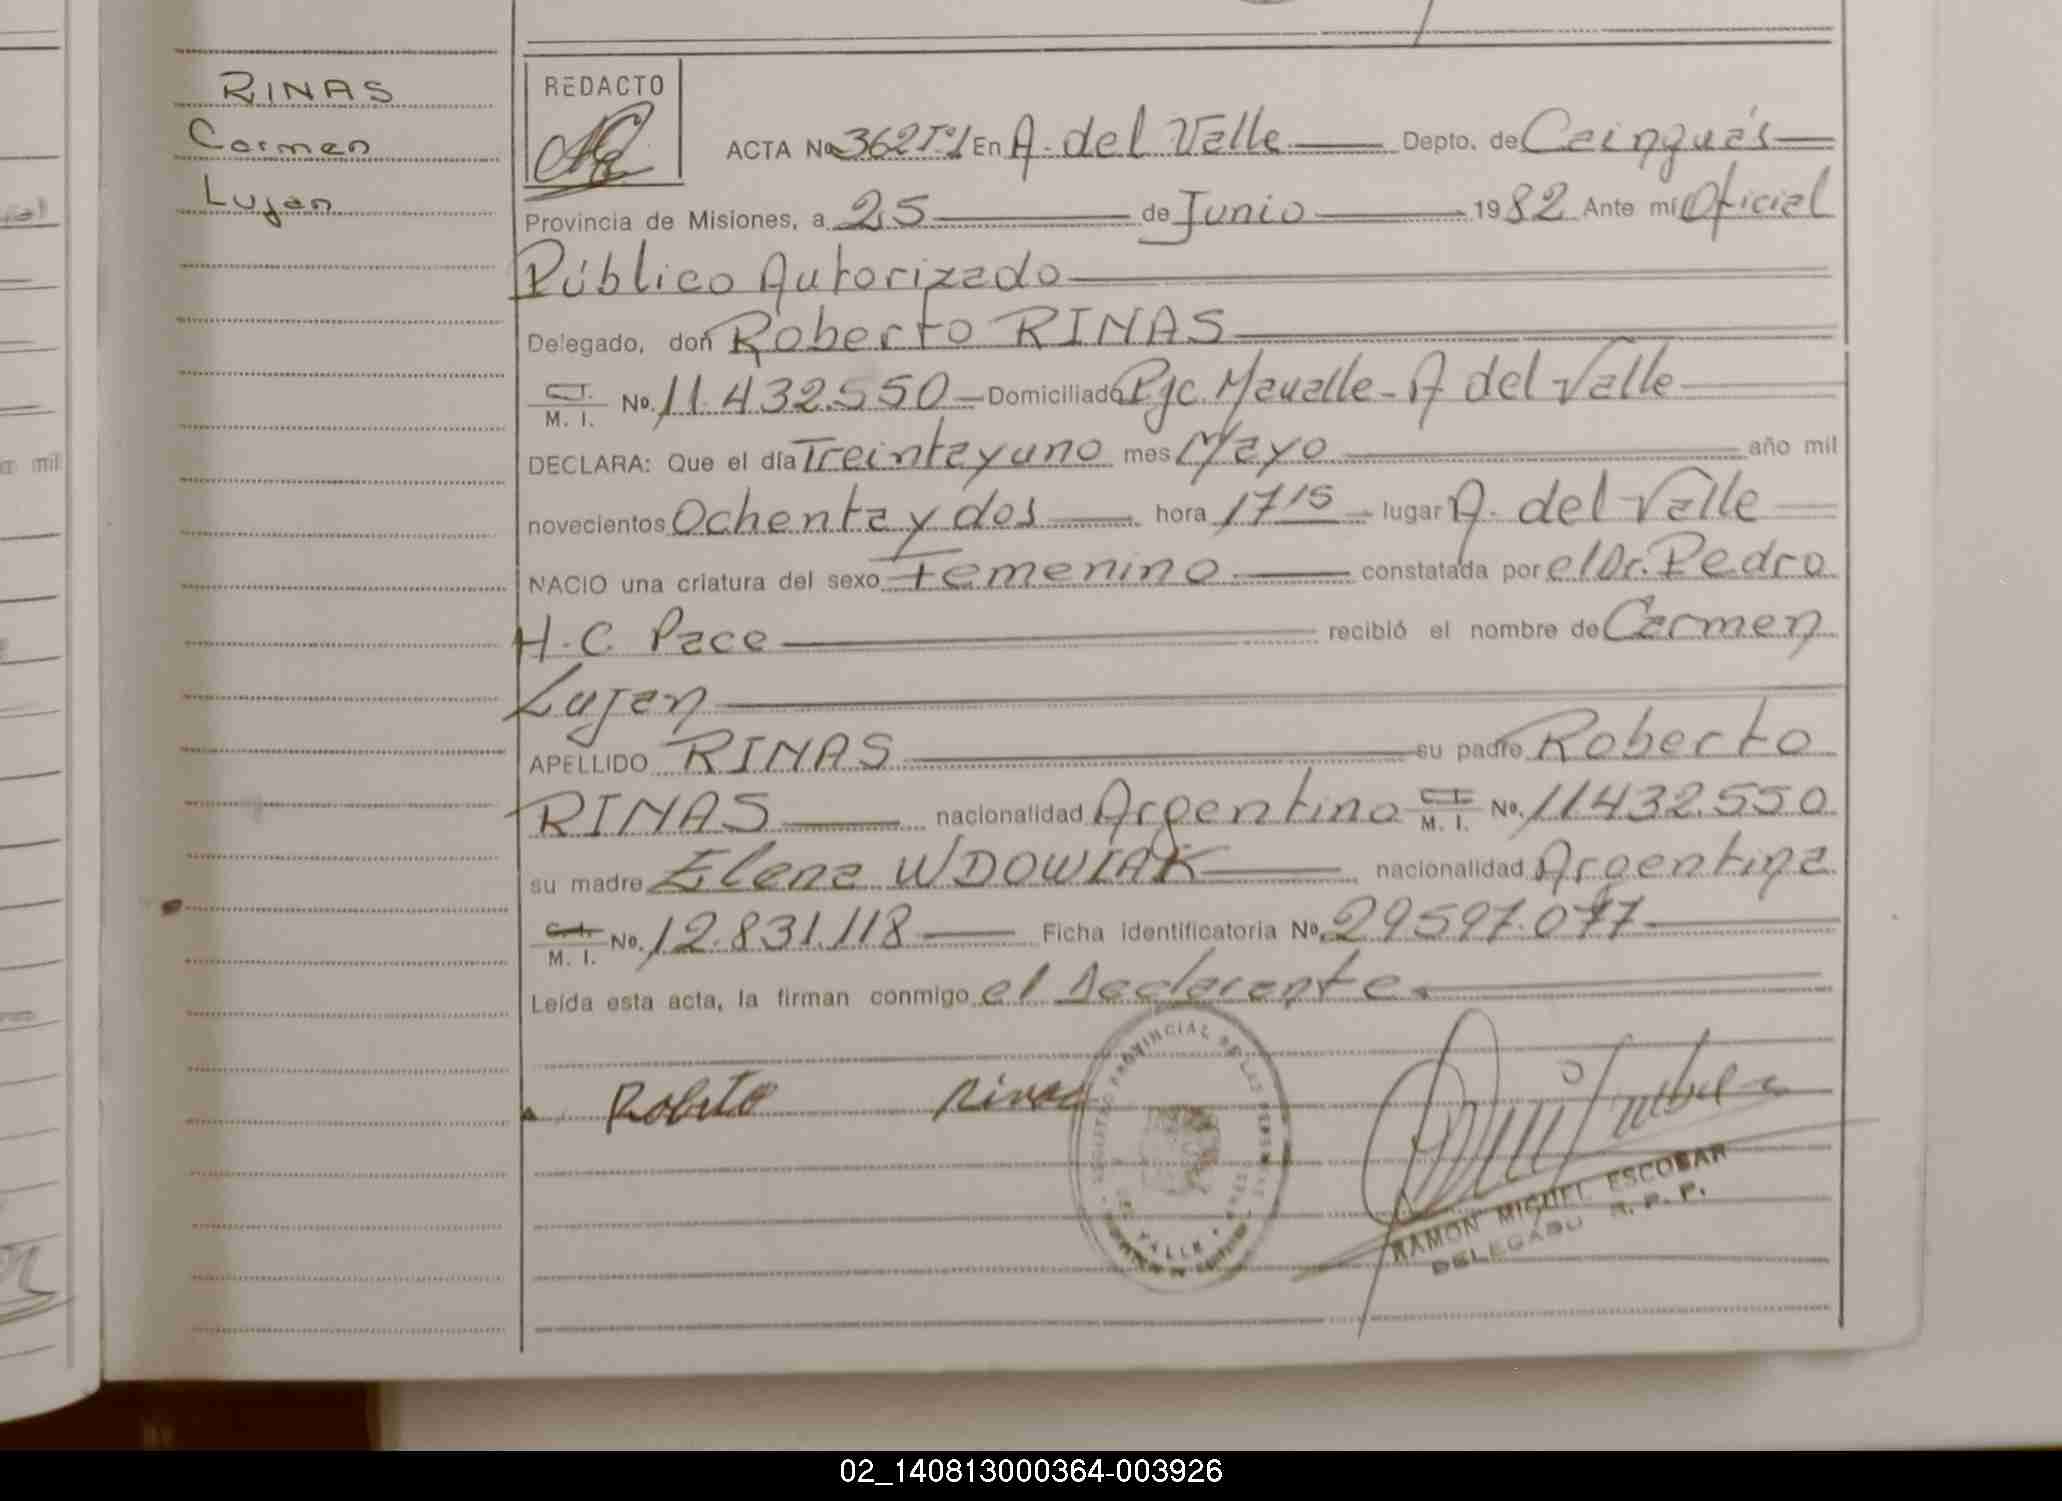 RINAS
Carmen
Lujan
REDACTO
ACTA No 362 Tº1 En A. del Valle Depto. de Cainguás
Provincia de Misiones, a 25 de Junio 1982 Ante mí Oficial
Público Autorizado
Delegado, don Roberto RINAS
C.I. M. I. No. 11.432.550 Domiciliado Pje. Mavalle - A del Valle
DECLARA: Que el día Treinta y uno mes Mayo año mil
novecientos Ochenta y dos hora 17 15 lugar A. del Valle
NACIO una criatura del sexo Femenino constatada por el Dr. Pedro
H. C. Pace recibió el nombre de Carmen
Lujan
APELLIDO RINAS su padre Roberto
RINAS nacionalidad Argentino C.I. M. I. No. 11432.550
su madre Elena WDOWIAK nacionalidad Argentina
C.I. M. I. No. 12.831.118 Ficha identificatoria No. 29597.077
Leída esta acta, la firman conmigo el Declarante.
Roberto Rinas
REGISTRO PROVINCIAL DE LAS PERSONAS
VALLE
RAMON MIGUEL ESCOBAR
DELEGADO R. P. P.
mil
02_140813000364-003926